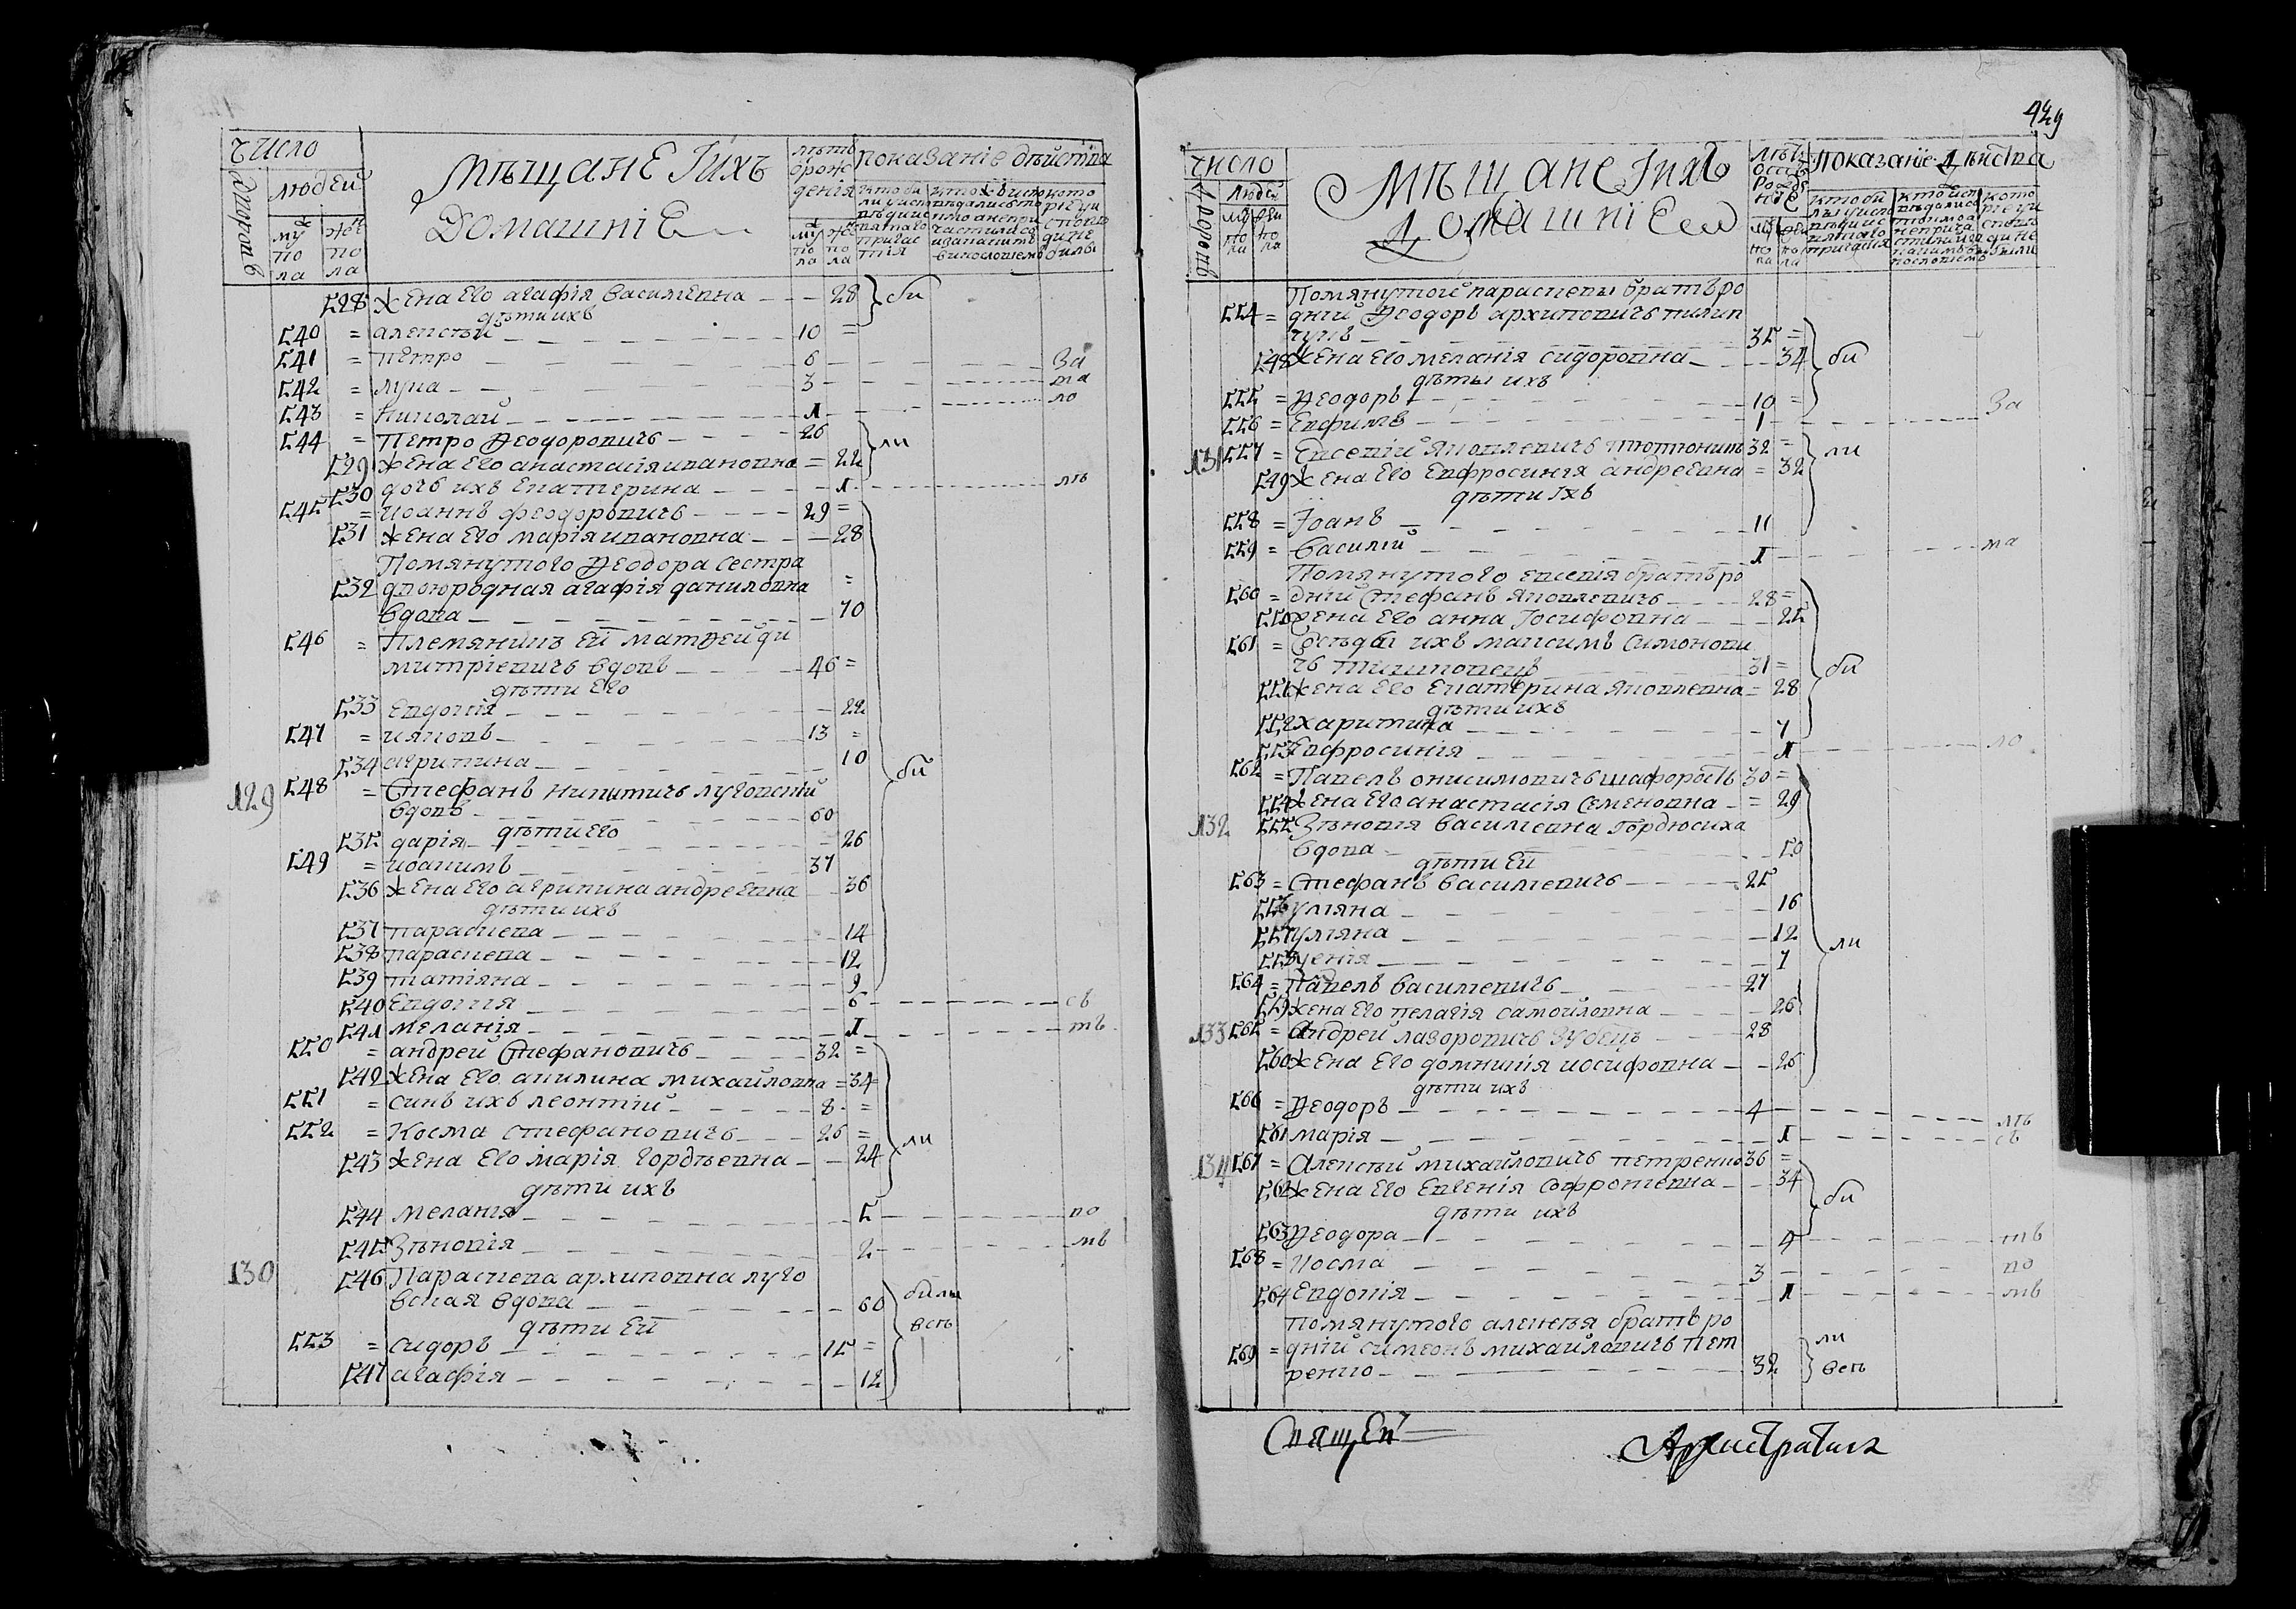 число
мѣщане Iихъ
Домашнiе
дворовъ
людей
муж
по
ла
жен
по
ла
лѣтъ
ѿрож
денiя
показанiе дѣйства
528 жена его агафiя василiевна 28 би
дѣти ихъ
540 = алексѣй 10 =
541 = петро 6 за
542 = лука 3 та
543 = николай 1 ло
544 = Петро Ѳеодоровичъ 26 ли
529 жена его анастасiя ивановна = 22
530 дочь ихъ екатерина 1 лѣ
545 = иоаннъ феодоровичъ 29 =
531 жена его марiя ивановна 28
Помянутого Ѳеодора сестра
532 двоюродная агафiя даниловна =
вдова 70
546 = Племянникъ ей матѳей ди
митрiевичъ вдовъ 46 =
дѣти его
533 евдокiя 22
547 = ияковъ 13 =
534 агрипина 10 би
129 548 = Стефанъ никитичъ луговский
вдовъ 60
дѣти его
535 дарiя 26
549 = иоакимъ 37
536 жена его агрипина андреевна 36
дѣти ихъ
537 параскева 14
538 параскева 12
539 татiяна 9
540 Евдокiя 6 съ
541 меланiя 1 тв
550 = андрей Стефановичъ 32 =
542 жена его акилина михайловна = 34 =
551 = синъ ихъ леонтiй 8 =
552 = Косма стефановичъ 26 = ли
543 жена его марiя гордѣевна 24
дѣти ихъ
544 меланiя 5 во
545 Зѣновiя 2 мъ
130 546 Параскева архиповна луго
вская вдова 60 били
дѣти ей всѣ
553 = сидоръ 15 =
547 агафiя 12
429
число
Мѣщане Iихъ
Домашнiе
дворовъ
людей
Показанiе дѣиства
Помянутой параскевы братъ ро
554 = днiй Ѳеодоръ архиповичъ пилип
чукъ 35 =
548 жена его меланiя сидоровна 34 би
дѣты ихъ
555 = Ѳеодоръ 10 =
556 = Евфимъ 1 за
131 557 = Евсевiй Яковлевичъ 32 = ли
549 жена его Евфросинiя андреевна = 32
дѣти iхъ
558 = Iоанъ 11
559 = василiй 1 та
Помянутого евсевiя братъ ро
560 = днiй Стефанъ яковлевичъ 28 =
550 жена его анна Iосифовна 25
561 = Сусѣды ихъ максимъ Симонови
чъ 31 = би
551 жена его екатерина яковлевна = 28
дѣти ихъ
552 харитина 7
553 Евфросинiя 1 ло
562 = Павелъ онисимовичъ шафоростъ 30 =
554 жена его анастасiя семеновна = 29
132 555 Зѣновiя василiевна гордюсиха
вдова 50
дѣти ей
563 = Стефанъ василiевичъ 25
556 улiяна 16
557 улiяна 12 ли
558 7
564 = Павелъ василiевичъ 27
559 жена его пелагiя самойловна 26
133 565 = Андрей лазоровичъ зубецъ 28
560 жена его домникiя иосифовна 26
дѣти ихъ
566 = Ѳеодоръ 4 лѣ
561 марiя 1 съ
134 567 = Алексѣй михайловичъ петренко 36 =
562 жена его евгенiя софронiевна 34 би
дѣти ихъ
563 Ѳеодора 4 тв
568 = Косма 3 по
564 Евдокiя 1 мъ
помянутого алексѣя братъ ро
569 = днiй симеонъ михайловичъ пет ли
ренко 32 всѣ
Священ
Архистратига